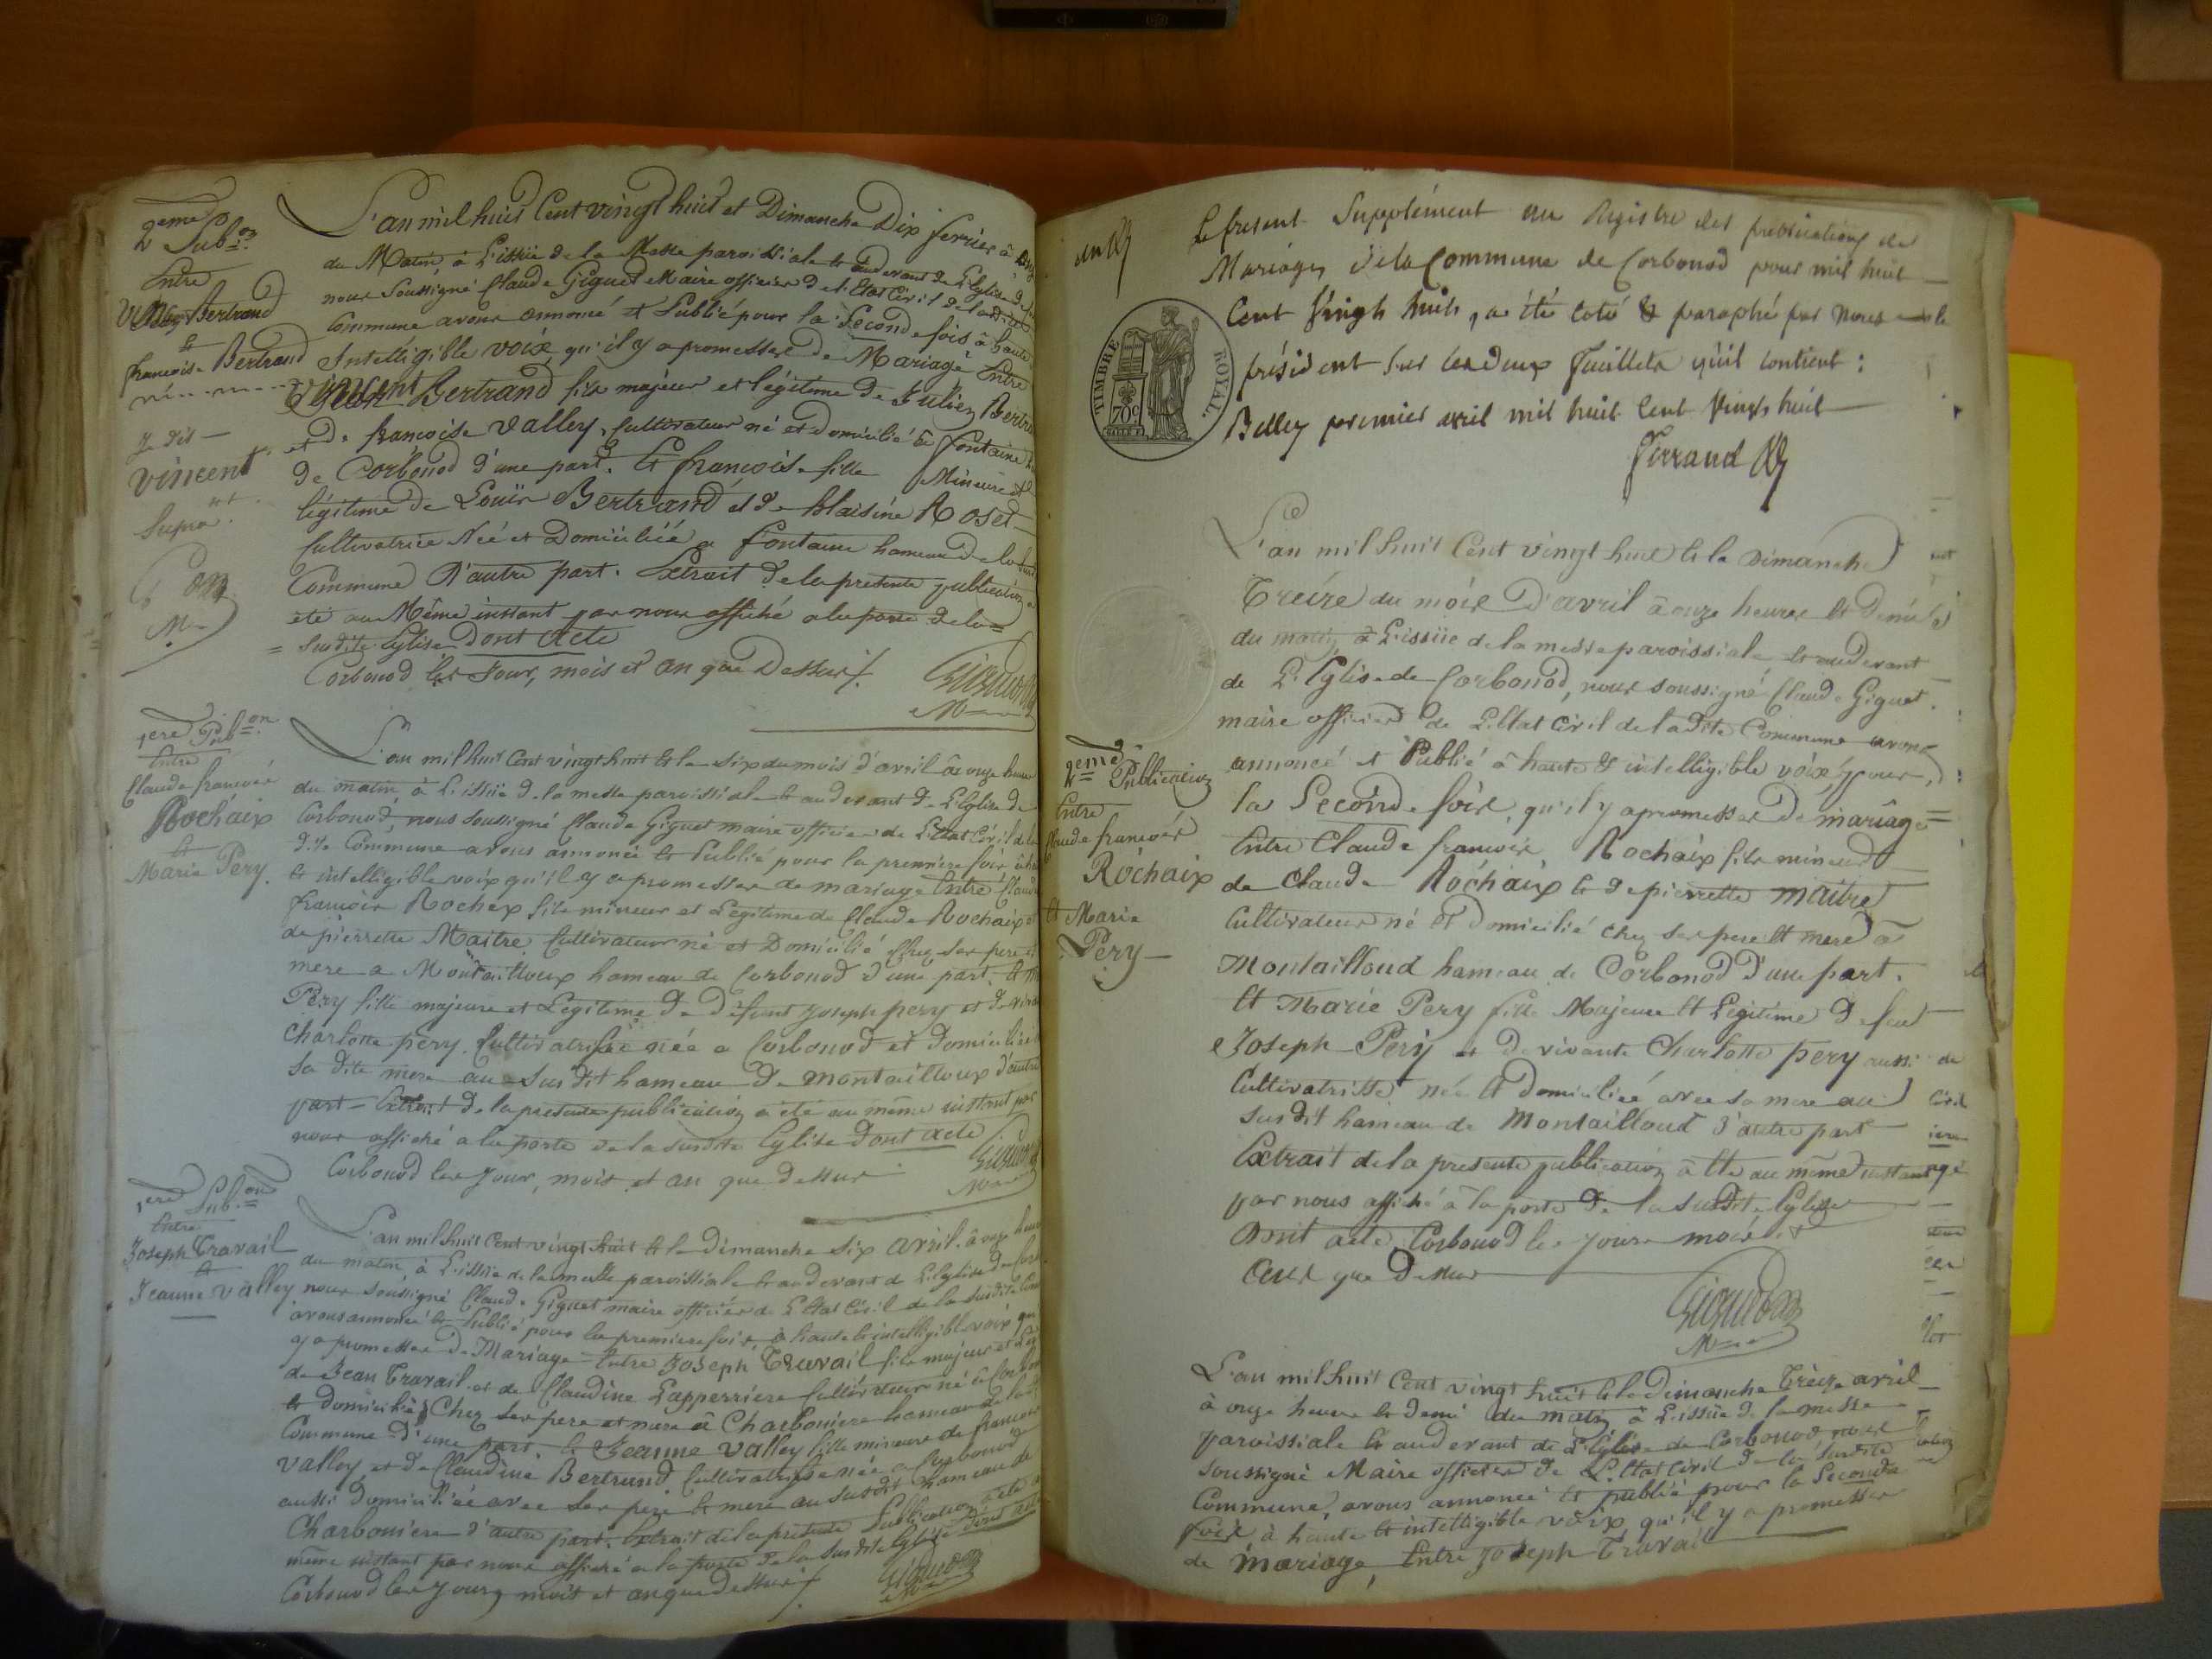 2eme Pub.on
Entre
Vincent Bertrand
et
françoise Bertrand
Je dis
vincent
Supra
L'an mil huit Cent vingt huit et Dimanche Dix ferier à
du Matin, à L'issüe de la Messe paroissiale et audevant de L'Eglise de
nous Soussigné Claude Giguet Maire officier de L'Etat Civil de
Commune avons annoncé et Publié pour la Seconde fois à haute
Intelligible voix, qu'il y a promesses de Mariage Entre
vincent Bertrand fils majeur et légitime de Julien Bertra
et de françoise Valley, Cultivateur né et domicilié à fontaine
de Corbonod d'une part. Et françoise fille Mineure et
légitime de Louis Bertrand et de blaisine Roset
Cultivatrice Née et Domiciliée a fontaine hameau de la
Commune D'autre part. Extrait de la presente publication a
été au Même instant par nous affiché a la porte de la
Susdite Eglise Dont Acte
Corbonod les Jour, mois et An que Dessus
1ere Pub.on
Entre
Claude françois
Rochaix
et
Marie Pery.
L'an mil huit Cent vingt huit et le six du mois d'avril à onze heures
du matin à L'issüe de la messe paroissiale et audevant de L'Eglise de
Corbonod, nous soussigné Claude Giguet maire officier de L'Etat Civil de la
dite Commune avons annoncé et Publié pour la premiere fois à haute
et intelligible voix qu'il y a promesses de mariage Entre Claude
françois Rochex fils mineur et Legitime de Claude Rochaix et
de pierrette Maitre Cultivateur né et Domicilié Chez ses pere et
mere a Montailloux hameau de Corbonod d'une part. Et
Pery fille majeure et Legitime de defunt Joseph pery et de
Charlotte pery Cultivatrisse née a Corbonod et domiciliée
Sa dite mere au Susdit hameau de Montailloux d'autre
part - Extrait de la presente publication a été au même instant par
nous affiché a la porte de la susdite Eglise Dont acte
Corbonod les jour, mois et an que dessus
1ere Pub.on
Entre
Joseph Travail
et
Jeanne Valley
L'an mil huit Cent vingt huit et le dimanche six avril à onze heures
du matin, à L'issüe de la messe paroissiale et audevant de L'Eglise de
nous soussigné Claude Giguet maire officier de L'Etat Civil de la susdite
avons annoncé et Publié pour la premiere fois, à haute et intelligible voix qu'il
y a promesses de Mariage Entre Joseph Travail fils majeur et
de Jean Travail et de Claudine Lapperriere Cultivateur né à
et domicilié Chez ses pere et mere à Charboniere hameau de la
Commune d'une part. Et Jeanne Valley fille mineure de françois
Valley et de Claudine Bertrand Cultivatrisse née a Corbonod
aussi domiciliée avec ses pere et mere au susdit hameau de
Charboniere d'autre part. Extrait de la présente Publication a été au
même instant par nous affiché a la porte de la susdite Eglise Dont acte
Corbonod les jour, mois et an que dessus
Le present Supplément au Registre des publications de
Mariages de la Commune de Corbonod pour mil huit
Cent Vingt huit, a été coté & paraphé par Nous
président sur les deux feuillets qu'il contient :
Belley premier avril mil huit Cent Vingt huit
TIMBRE ROYAL.
70c
2eme
Publication
Entre
Claude françois
Rochaix
Et Marie
Pery
L'an mil huit Cent vingt huit et le Dimanche
Treize du mois D'avril à onze heures et Demie
du matin, à L'issüe de la messe paroissiale et audevant
de L'Eglise de Corbonod, nous soussigné Claude Giguet
maire officier de L'Etat Civil de la dite Commune avons
annoncé et Publié à haute & intelligible voix, pour
la Seconde fois, qu'il y a promesses De mariage
Entre Claude françois Rochaix fils mineur
de Claude Rochaix et de pierrette maitre
Cultivateur né et Domicilié chez ses pere et mere à
Montailloud hameau de Corbonod D'une part.
Et Marie Pery fille Majeure Et Legitime De feu
Joseph Pery et de vivante Charlotte pery aussi
Cultivatrisse née et domiciliée avec sa mere au
susdit hameau de Montailloud d'autre part
Extrait de la presente publication à été au même instant
par nous affiché à la porte de la susdite Eglise
Dont acte, Corbonod les jour mois et
que Dessus
L'an mil huit Cent vingt huit et le Dimanche Treize avril
à onze heures et demi du matin à L'issüe de la messe
paroissiale et audevant de L'Eglise de Corbonod nous
soussigné Maire officier de L'Etat Civil de la susdite
Commune, avons annoncé et publié pour la Seconde
fois à haute et intelligible voix, qu'il y a promesses
de mariage, Entre Joseph Travail